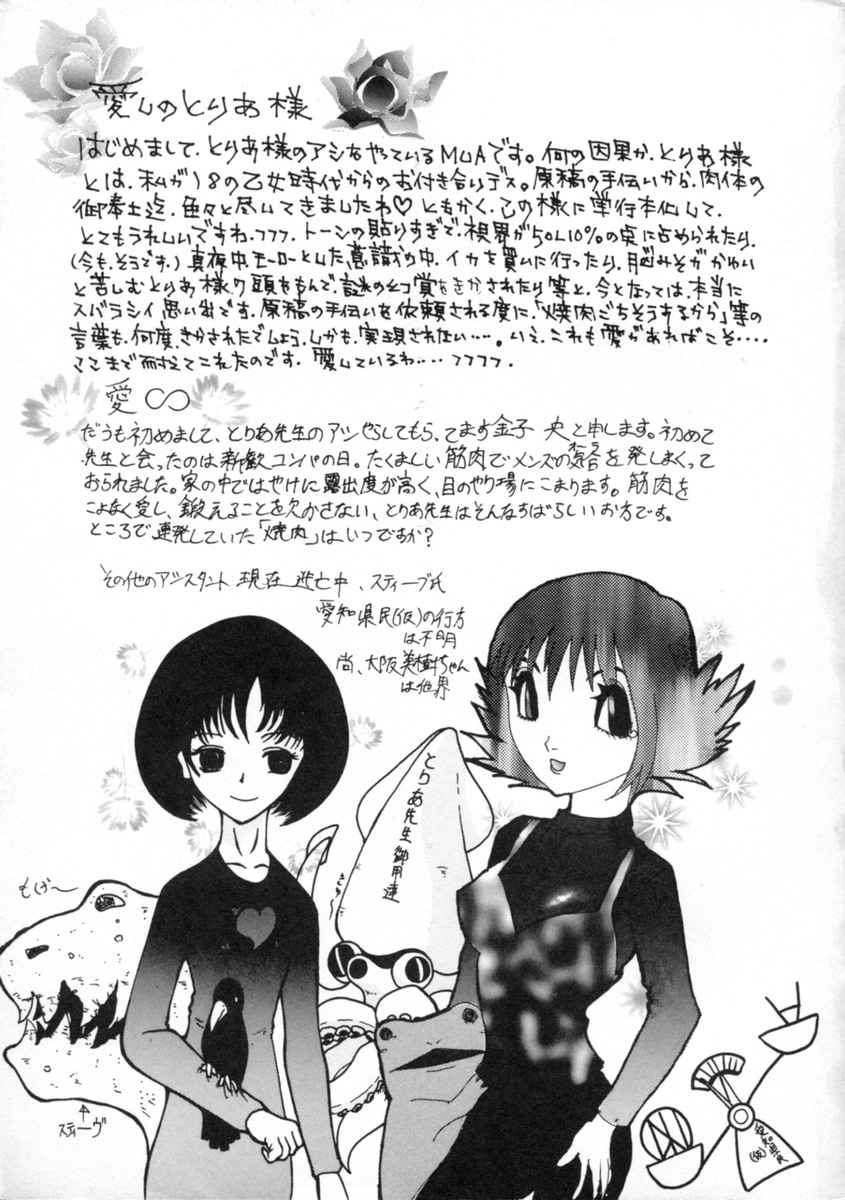 愛しのとりあ様
はじめまして、とりあ様のアシをやっているMUAです。何の因果か、とりあ様
とは、私が18の乙女時代からのお付き合いデス。原稿の手伝いから、肉体の
御奉仕迄、色々と尽してきましたわ♡ともかく、この様に単行本化して、
とてもうれしいですね、フフフ。トーンの貼りすぎで、視界が50L10%の点に占められたり、
(今も、そうです。)真夜中モーローとした意識の中、イカを買いに行ったり、脳みそがかゆい
と苦しむとりあ様の頭をもんで、謎の幻覚をきかされたり等と、今となっては、本当に
スバラシイ思い出です。原稿の手伝いを依頼される度に、「焼肉ごちそうするから」等の
言葉も、何度、きかされたでしょう、しかも、実現されない…。いえ、これも愛があればこそ‥‥
ここまで耐えてこれたのです。愛しているわ‥‥フフフフ.
愛∞
だうも初めまして、とりあ先生のアシやらしてもらってます金子 央と申します。初めて
先生と会ったのは新歓コンパの日。たくましい筋肉でメンズの気合を発しまくって
おられました。家の中ではやけに露出度が高く、目のやり場にこまります。筋肉を
こよなく愛し、鍛えることを欠かさない、とりあ先生はそんなすばらしいお方です。
ところで連発していた「焼肉」はいつですか?
その他のアシスタント 現在逃亡中、スティーブ氏
愛知県民(仮)の行方
は不明
尚、大阪美樹ちゃん
は他界
とりあ先生御用達
もげ〜
スティーヴ
愛知県民
(仮)